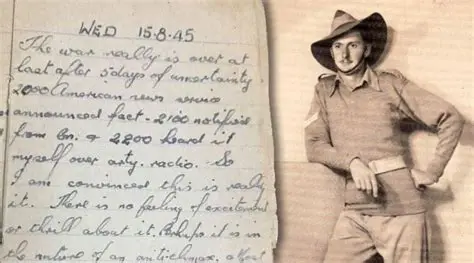 WED 15-8-45
The war really is over at
last after 5 days of uncertainty.
2000 American news service
announced fact - 2100 notified
from Bn. & 2200 heard it
myself over arty. radio. So
I am convinced this is really
it. There is no feeling of excitement
or thrill about it. Perhaps it is in
the nature of an anti-climax, a